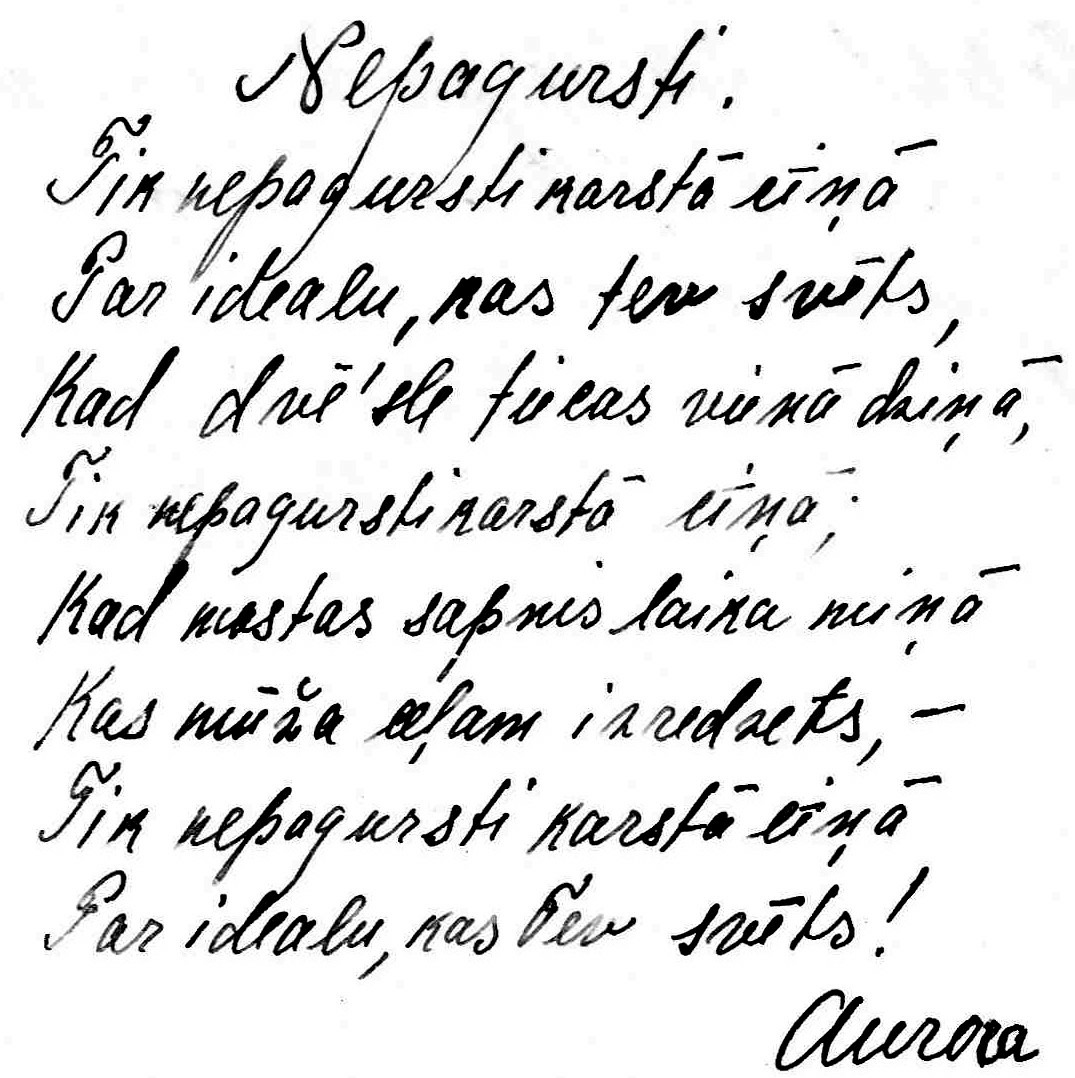 Nepagursti.
Tik nepagursti karstā cīņā
Par idealu, kas tev svēts,
Kad dvē'sle tiecas vienā dziņā,
Tik nepagursti karstā cīņā;
Kad mostas sapnis laika miņā
Kas mūža ceļam izredzets, —
Tik nepagursti karstā cīņā
Par idealu, kas Tev svēts!
Aurora